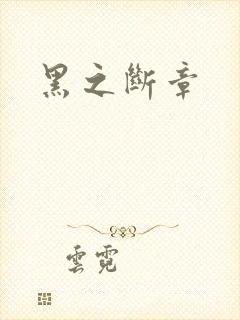 黑之斷章
雲霓